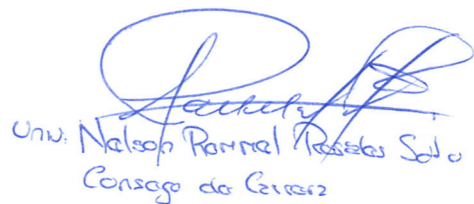 Univ. Nelson Rommel Rosales Soto
Consejo de Carrera